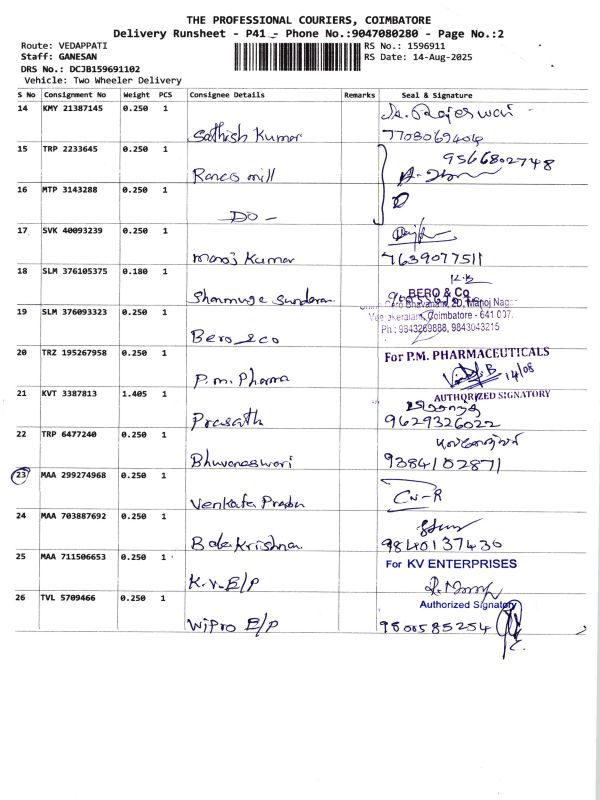 THE PROFESSIONAL COURIERS, COIMBATORE
Delivery Runsheet - P41 - Phone No.:9047080280 - Page No.:2
Route: VEDAPPATI
RS No.: 1596911
Staff: GANESAN
RS Date: 14-Aug-2025
DRS No.: DCJB159691102
Vehicle: Two Wheeler Delivery
S No Consignment No Weight PCS Consignee Details Remarks Seal & Signature
14 KMY 21387145 0.250 1
Sathish Kumar 7708069406
15 TRP 2233645 0.250 1 9566802748
Ranco mill
16 MTP 3143288 0.250 1
DO -
17 SVK 40093239 0.250 1
Manoj Kumar 7639077511
18 SLM 376105375 0.180 1
Shanmuga Sundaram
BERO & Co
Bhavanam, 2D, Manoj Nagar
19 SLM 376093323 0.250 1 Coimbatore - 641 007.
Ph : 9843269888, 9843043215
Bero & co
20 TRZ 195267958 0.250 1 For P.M. PHARMACEUTICALS
P.m. Pharma 14/08
21 KVT 3387813 1.405 1 AUTHORIZED SIGNATORY
Prasath 9629326022
22 TRP 6477240 0.250 1
Bhuvaneswari 9384102871
23 MAA 299274968 0.250 1
Venkata Prabu
24 MAA 703887692 0.250 1
Bala Krishnan 9840137430
25 MAA 711506653 0.250 1 For KV ENTERPRISES
K.V. E/P
26 TVL 5709466 0.250 1 Authorized Signatory
Wipro E/P 9800585254